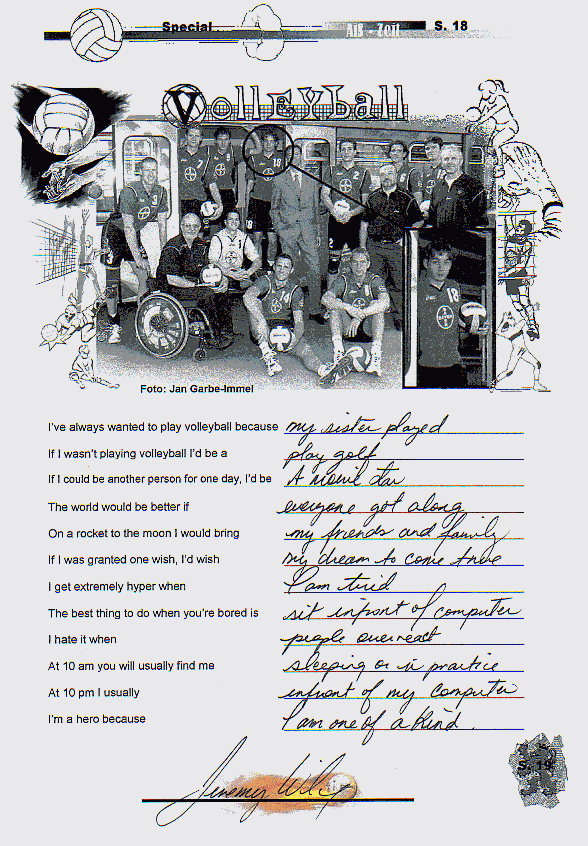 Special
Als - Zeit S. 18
Volleyball
7
18
2
3
14
18
Foto: Jan Garbe-Immel
I've always wanted to play volleyball because my sister played
If I wasn't playing volleyball I'd be a play golf
If I could be another person for one day, I'd be A movie star
The world would be better if everyone got along
On a rocket to the moon I would bring my friends and family
If I was granted one wish, I'd wish my dream to come true
I get extremely hyper when I am tired
The best thing to do when you're bored is sit infront of computer
I hate it when people overreact
At 10 am you will usually find me sleeping or in practice
At 10 pm I usually infront of my computer
I'm a hero because I am one of a kind.
Jeremy
S. 19